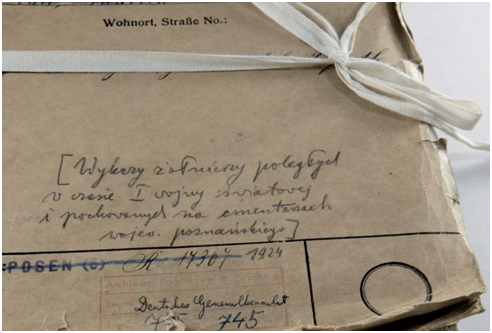 Wohnort, Straße No.:
[Wykazy żołnierzy poległych
w czasie I wojny światowej
i pochowanych na cmentarzach
wojew. poznańskiego]
POSEN (6) R 17307 1924
Archiwum
Deutsches Generalkonsulat
745